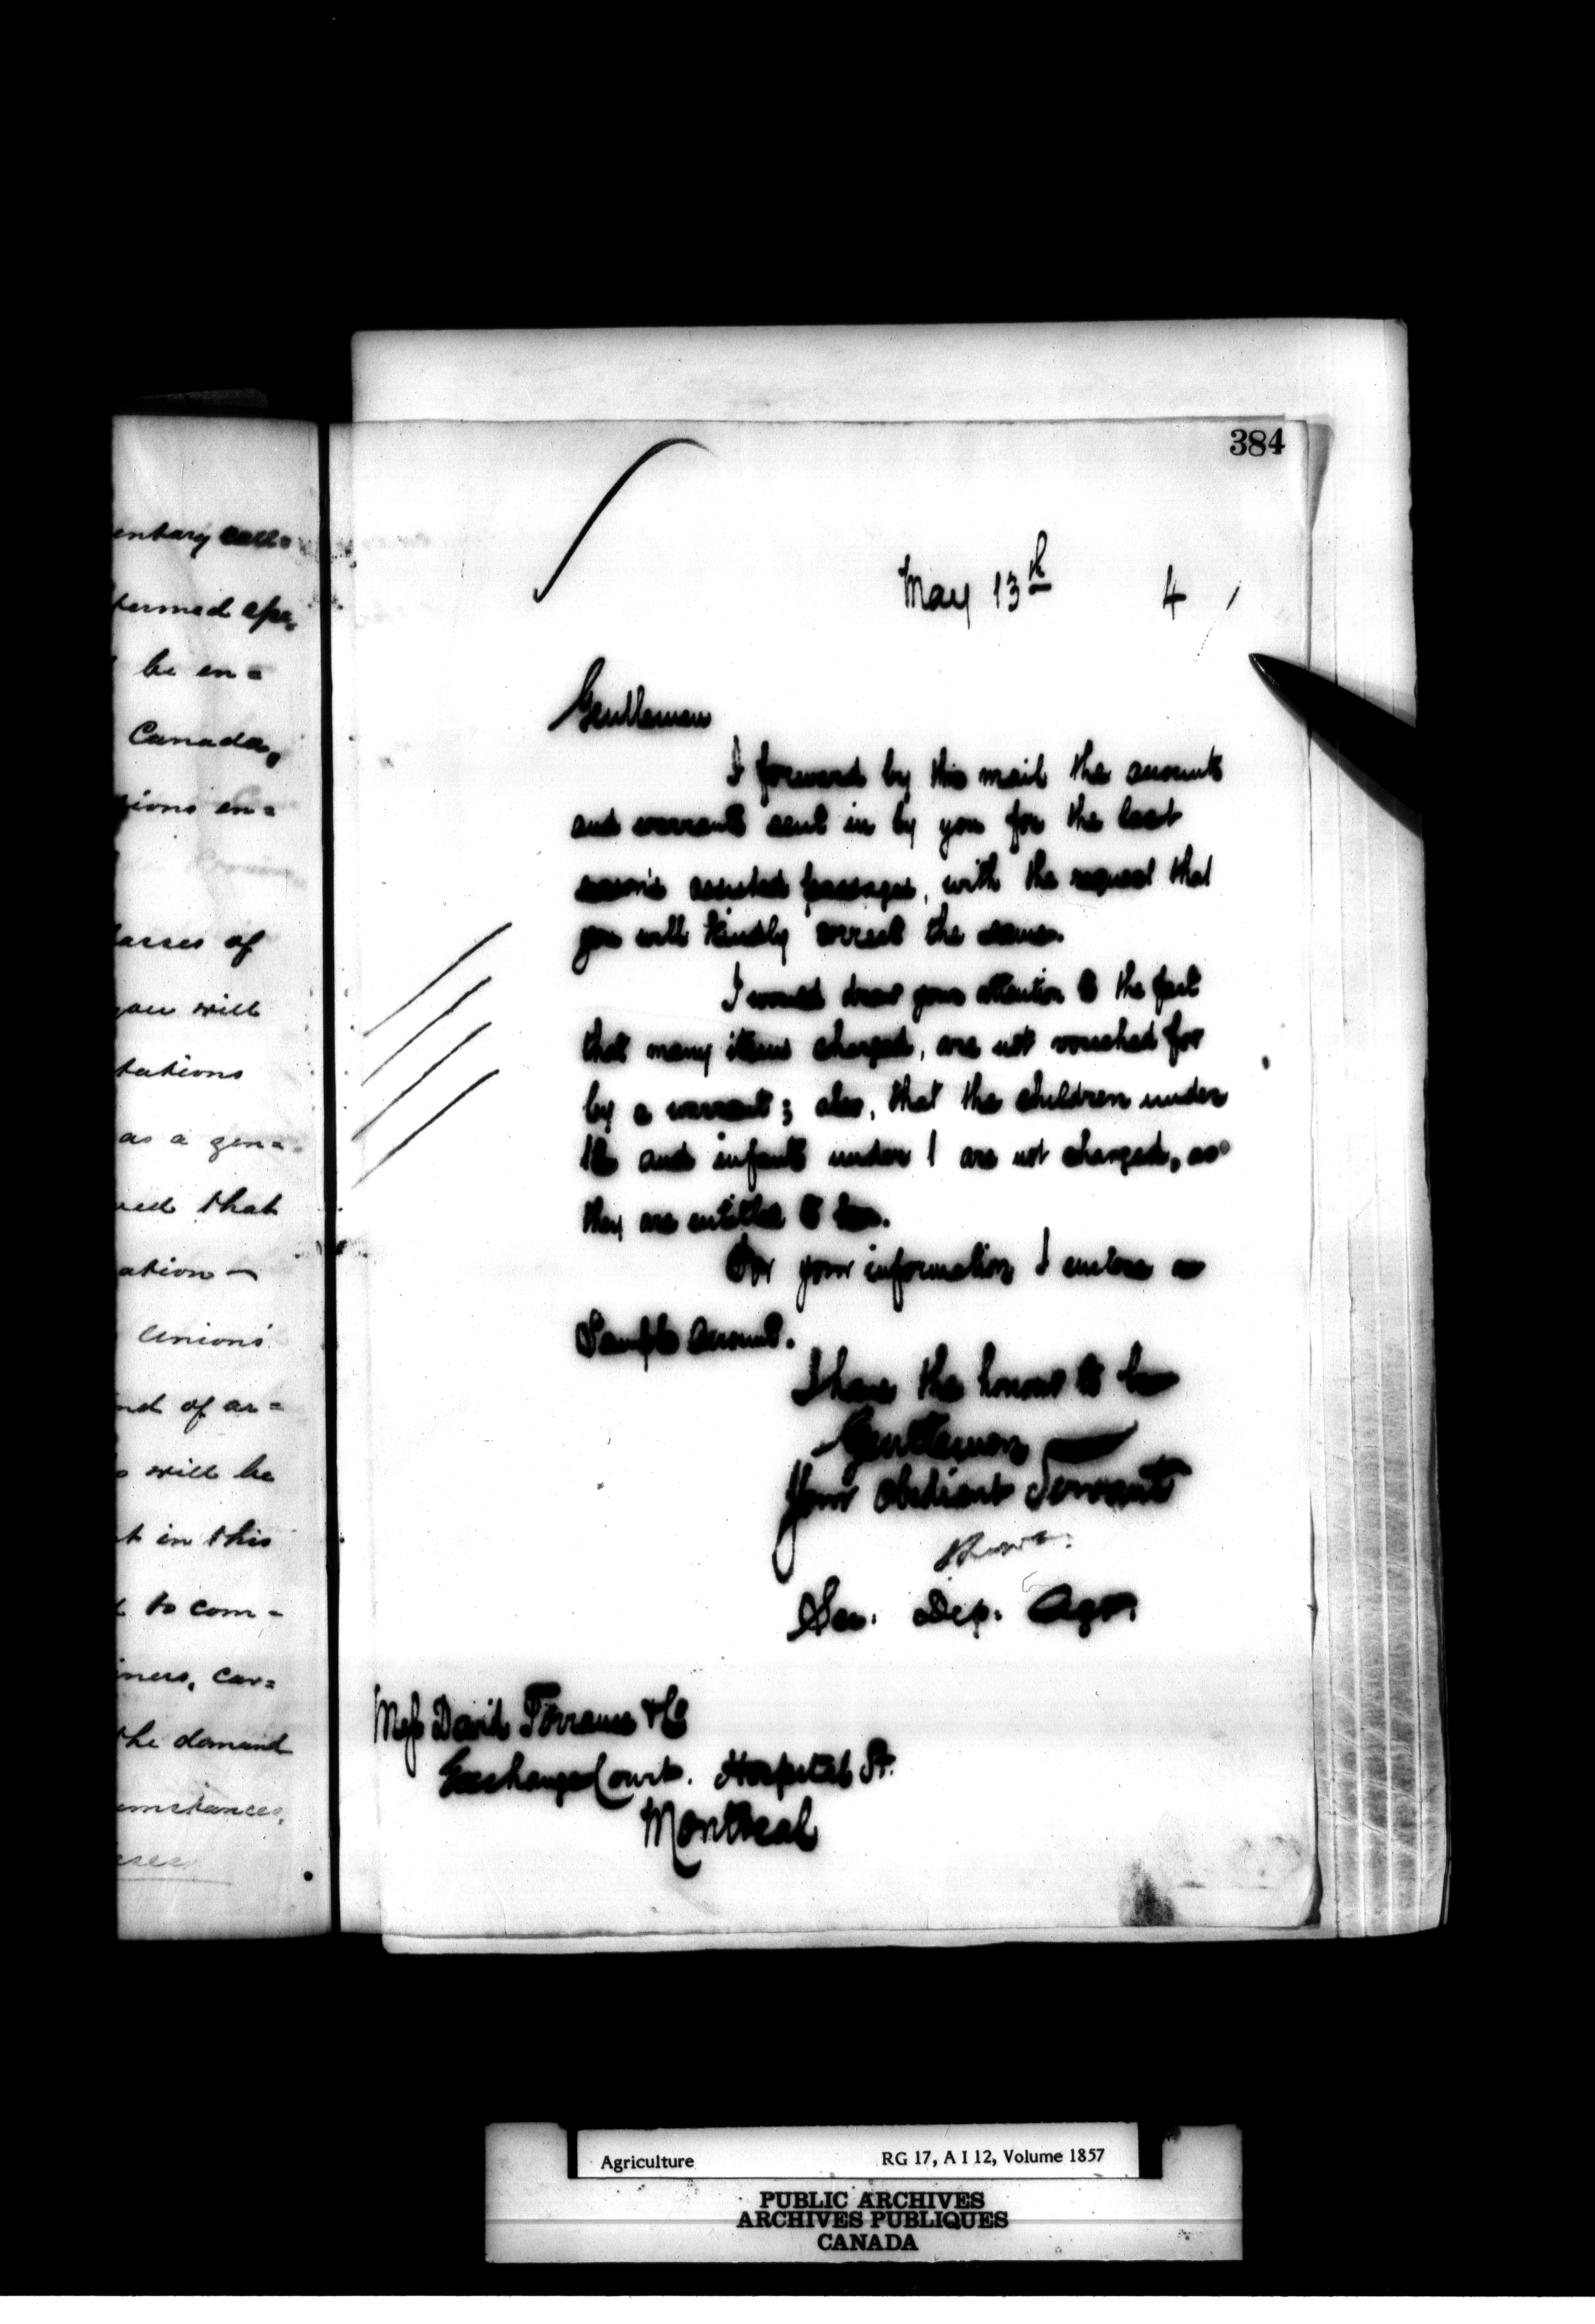 entary
termed
be en=
Canada,
tions en=
lasses of
you will
tations
as a gen=
ved that
ation —
Unions
nd of ar=
will be
t in this
to com=
iners, car=
the demand
umstances,
384
May 13th 4
Gentlemen
I forward by this mail the accounts
and warrants sent in by you for the last
season's assisted passages, with the request that
you will kindly correct the same.
I would draw your attention to the fact
that many items charged, are not vouched for
by a warrant; also, that the children under
12 and infants under 1 are not charged, as
they are entitled to be.
For your information I enclose a
Sample account.
I have the honour to be
Gentlemen
Your obedient Servant
Sec. Dep. Agr.
Messrs David Torrance & Co
Exchange Court. Hospital St.
Montreal
Agriculture RG 17, A I 12, Volume 1857
PUBLIC ARCHIVES
ARCHIVES PUBLIQUES
CANADA